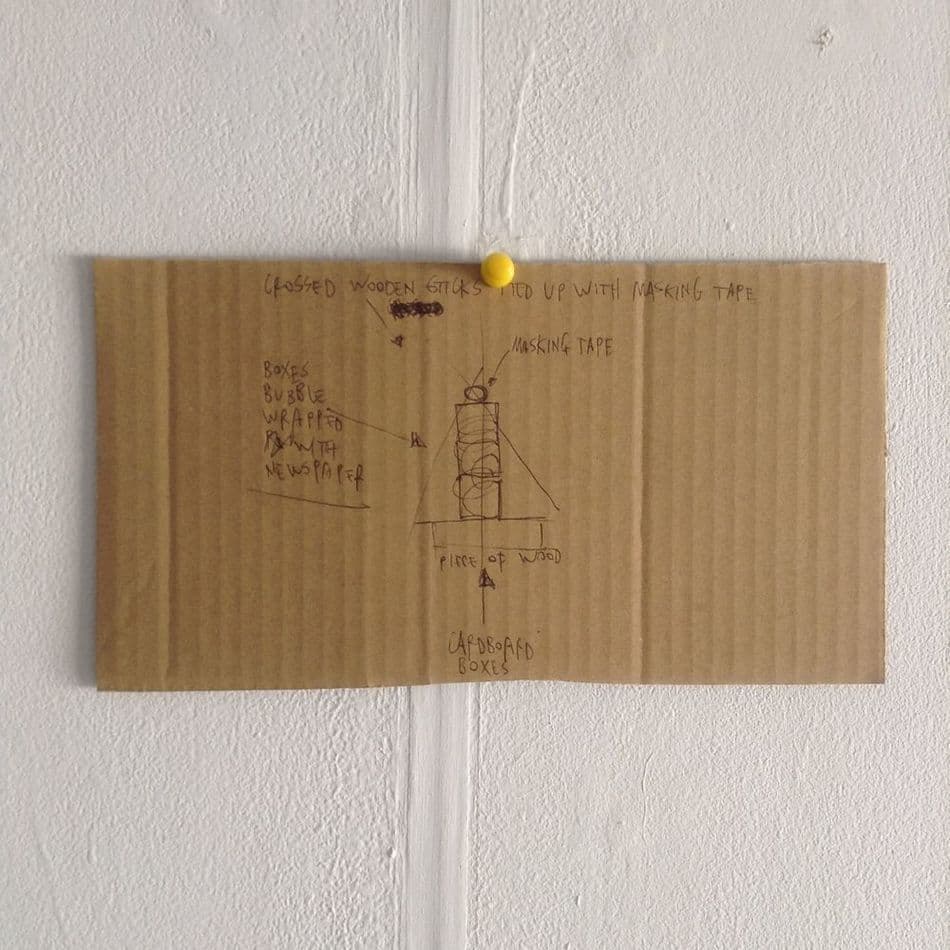 CROSSED WOODEN STICKS TIED UP WITH MASKING TAPE
MASKING TAPE
BOXES
BUBBLE
WRAPPED
WITH
NEWSPAPER
PIECE OF WOOD
CARDBOARD
BOXES